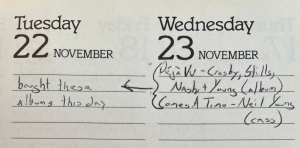 Tuesday
22 NOVEMBER
bought these
albums this day
Wednesday
23 NOVEMBER
Déjà Vu - Crosby, Stills,
Nash & Young (album)
Comes A Time - Neil Young
(cass)